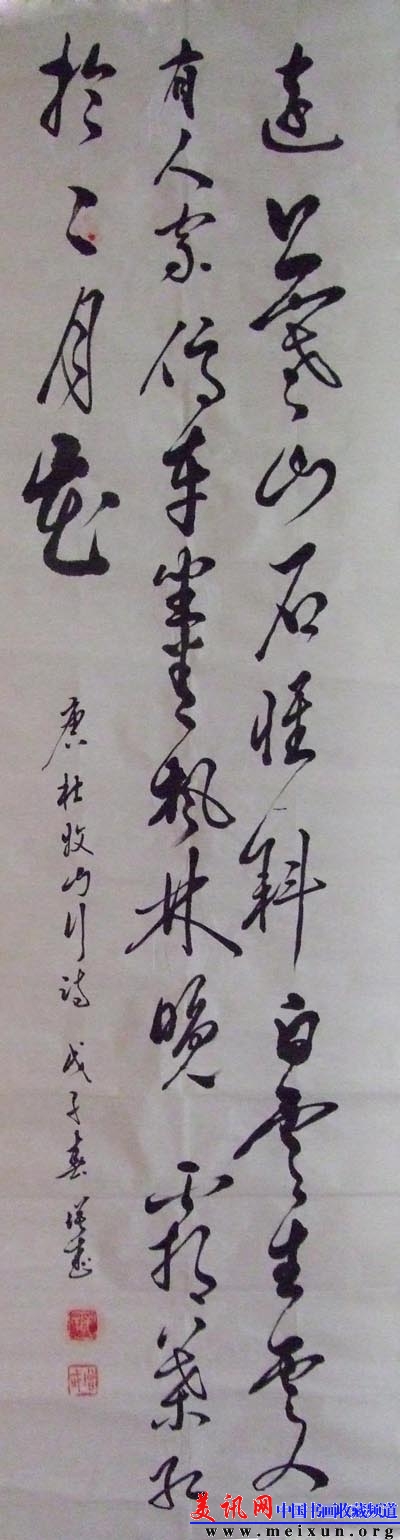 遠上寒山石徑斜白雲生處
有人家停車坐愛楓林晚霜葉紅
於二月花
唐杜牧山行詩 戊子春
美讯网 中国书画收藏频道
www.meixun.org